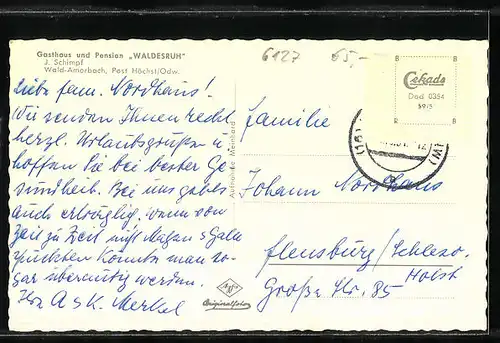 Gasthaus und Pension „WALDESRUH"
J. Schimpf
Wald-Amorbach, Post Höchst/Odw.
6127 65,-
Liebe Fam. Nordhaus!
Wir senden Ihnen recht
herzl. Urlaubsgrüße u.
hoffen Sie bei bester Ge
sundheit. Bei uns gehts
auch erträglich, wenn von
Zeit zu Zeit nicht Magen & Galle
zwickten könnte man so-
gar übermütig werden.
Ihre A & K. Merkel
Aufnahme Meinhard
Originalfoto
B B
Cekade
Dad 0354
B B
(16)
Familie
Johann Nordhaus
Flensburg/Schlesw.
Holst
Große Str. 85